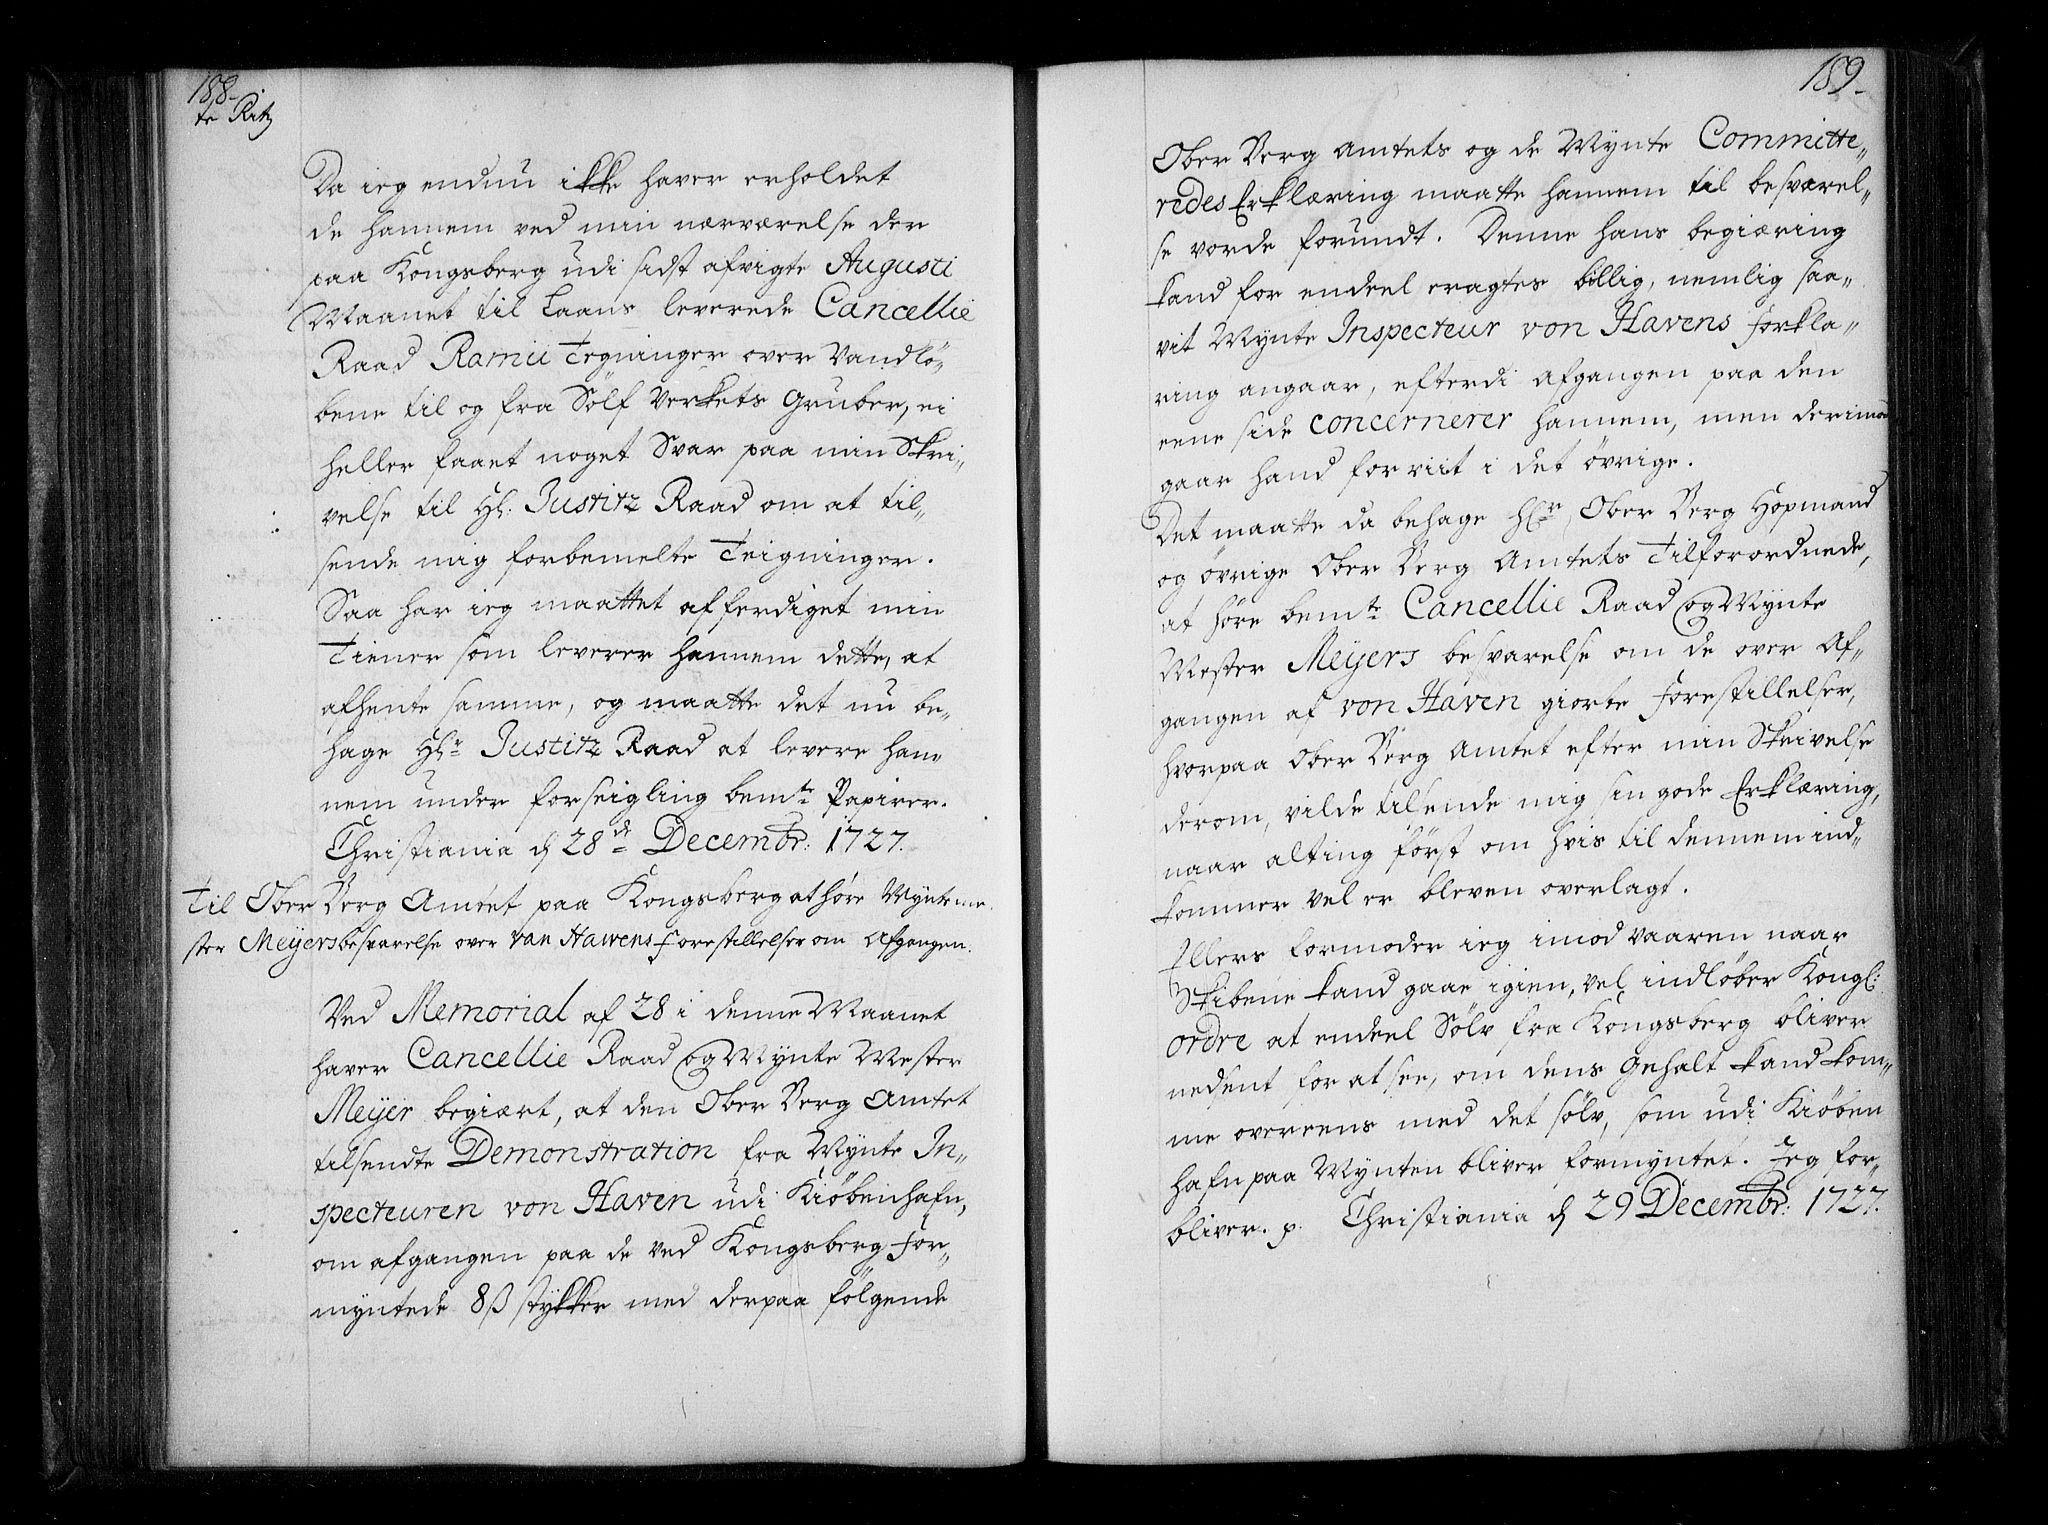 188.
te Ritz
Da ieg endnu ikke haver erholdet
de hannem ved min nærværelse der
paa Kongsberg udi sidst afvigte Augusti
Maanet til Laans leverede Cancellie
Raad Ramii Tegninger over Vandlö„
bene til og fra Sölf Verkets Gruber, ei
heller faaet noget Svar paa min Skri„
velse til Hl: Justitz Raad om at til„
sende mig forbemelte Teigninger.
Saa har ieg maattet afferdiget min
Tiener som leverer hannem dette, at
afhente samme, og maatte det nu be„
hage Hl:r Justitz Raad at levere han„
nem under forseigling bem:te Papirer.
Christiania d 28de Decembr: 1727.
Til Ober Berg Amtet paa Kongsberg at höre Myntme„
ster Meyers besvarelse over van Havens forestillelser om Afgangen.
Ved Memorial af 28 i denne Maanet
haver Cancellie Raad og Mynte Mester
Meijer begiært, at den Ober Berg Amtet
tilsendte Demonstration fra Mynte In„
specteuren von Haven udi Kiöbenhafn,
om afgangen paa de ved Kongsberg For„
myntede 8ß stykker med derpaa fölgende
189.
Ober Berg Amtets og de Mynte Committe„
redes Erklæring maatte hannem til besvarel„
se vorde forundt. Denne hans begiæring
kand for endeel eragtes billig, nemlig saa„
vit Mynte Inspecteur von Havens Forkla„
ring angaar, efterdi afgangen paa den
eene side concernerer hannem, men derimod
gaar hand for viit i det övrige.
Det maatte da behage Hl:r Ober Berg Hopmand
og övrige Ober Berg Amtets Tilforordnede,
at höre bem:te Cancellie Raad og Mynte
Mester Meijers besvarelse om de over Af„
gangen af von Haven giorte Forestillelser,
hvorpaa Ober Berg Amtet efter min Skrivelse
derom, vilde tilsende mig sin gode Erklæring,
naar alting först om hvis til dennem ind„
kommer vel er bleven overlagt.
Ellers formoder ieg imod Vaaren naar
Skibene kand gaae igien, vel indlöber Kongl:
ordre at endeel Sölv fra Kongsberg bliver
nedsent for at see, om dens Gehalt kand kom„
me overeens med det sölv, som udi Kiöben
hafn paa Mynten bliver formyntet. Jeg for„
bliver. p. Christiania d 29 Decembr: 1727.